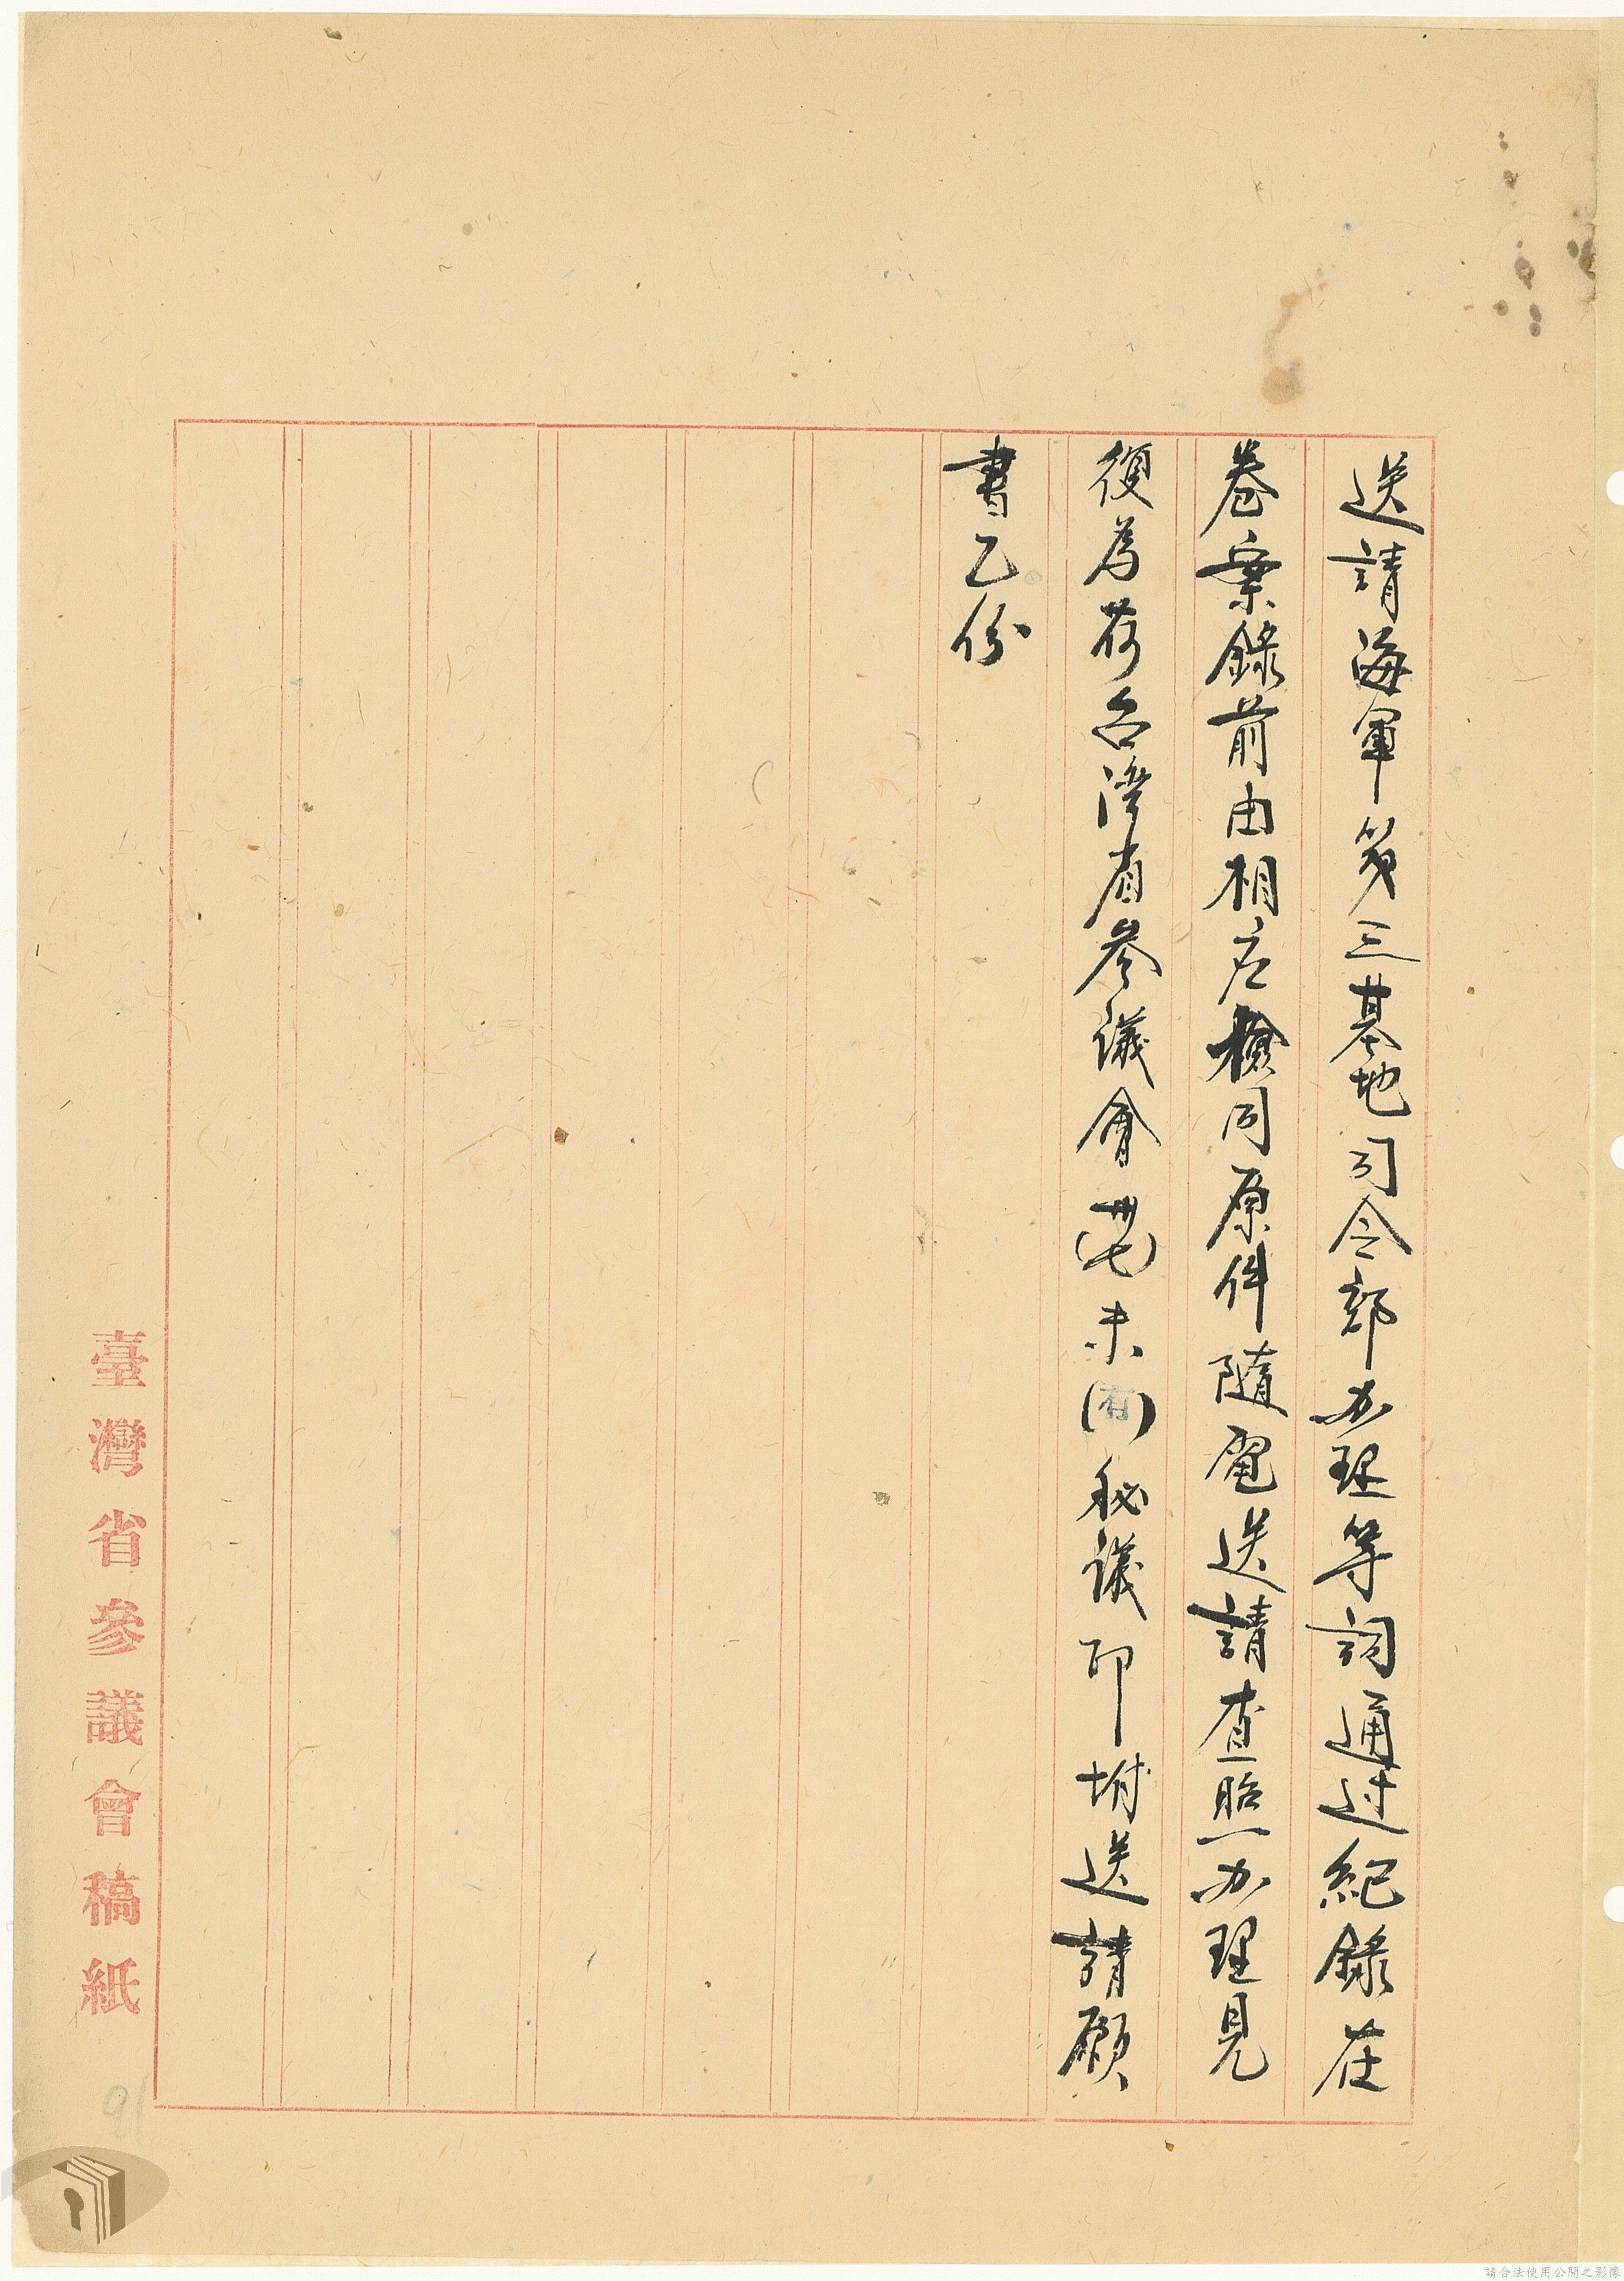 送請海軍第三基地司令部办理等詞通过紀錄在
卷案錄前由相应檢同原件隨電送請查照办理見
復為荷台灣省參議會(卅七)未(有)秘議印坿送請願
書乙份
臺灣省參議會稿紙
91
請合法使用公開之影像